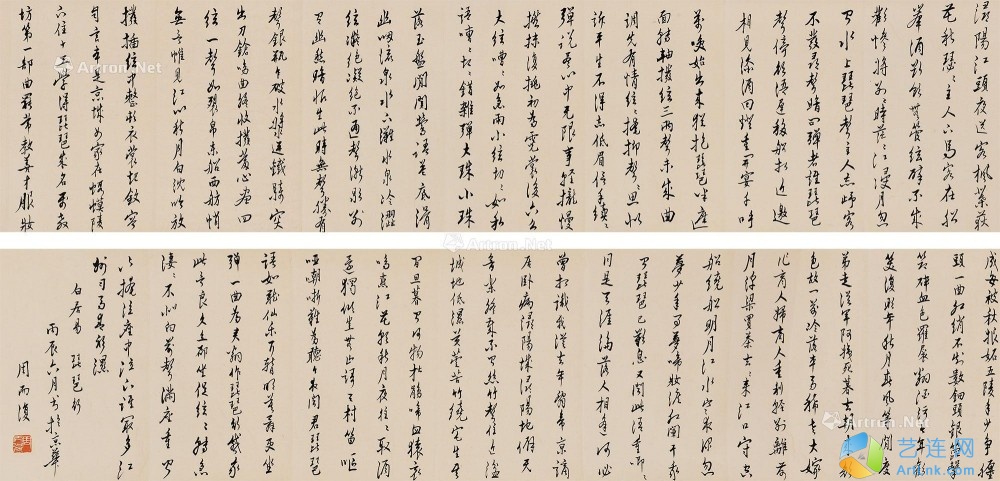 潯陽江頭夜送客楓葉荻
花秋瑟〻主人下馬客在船
舉酒欲飲無管絃醉不成
歡慘將別〻時茫〻江浸月忽
聞水上琵琶聲主人忘歸客
不發尋聲暗問彈者誰琵琶
聲停欲語遲移船相近邀
相見添酒回燈重開宴千呼
萬喚始出來猶抱琵琶半遮
面轉軸撥絃三兩聲未成曲
調先有情絃〻掩抑聲〻思似
訴平生不得志低眉信手續〻
彈說盡心中無限事輕攏慢
撚抹復挑初為霓裳後六么
大絃嘈〻如急雨小絃切〻如私
語嘈〻切〻錯雜彈大珠小珠
落玉盤間關鶯語花底滑
幽咽流泉水下灘水泉冷澀
絃凝絕凝絕不通聲漸歇別
有幽愁暗恨生此時無聲勝有
聲銀瓶乍破水漿迸鐵騎突
出刀鎗鳴曲終收撥當心畫四
絃一聲如裂帛東船西舫悄
無言惟見江心秋月白沈吟放
撥插絃中整頓衣裳起斂容
自言本是京城女家在蝦蟆陵
下住十三學得琵琶成名屬教
坊第一部曲罷常教善才服妝
成每被秋娘妒五陵年少爭纏
頭一曲紅綃不知數鈿頭銀篦擊
節碎血色羅裙翻酒污今年歡
笑復明年秋月春風等閒度
弟走從軍阿姨死暮去朝來顏
色故門前冷落車馬稀老大嫁
作商人婦商人重利輕別離前
月浮梁買茶去去來江口守空
船繞船明月江水寒夜深忽
夢少年事夢啼妝淚紅闌干我
聞琵琶已嘆息又聞此語重唧〻
同是天涯淪落人相逢何必
曾相識我從去年辭帝京謫
居臥病潯陽城潯陽地僻無
音樂終歲不聞絲竹聲住近湓
城地低濕黃蘆苦竹繞宅生其
間旦暮聞何物杜鵑啼血猿哀
鳴春江花朝秋月夜往〻取酒
還獨傾豈無山歌與村笛嘔
啞嘲哳難為聽今夜聞君琵琶
語如聽仙樂耳暫明莫辭更坐
彈一曲為君翻作琵琶行感我
此言良久立卻坐促絃〻轉急
淒〻不似向前聲滿座重聞
皆掩泣座中泣下誰最多江
州司馬青衫濕
白居易 琵琶行
丙辰六月書於京華
周而復
Artron.Net
艺连网
Artlink.com